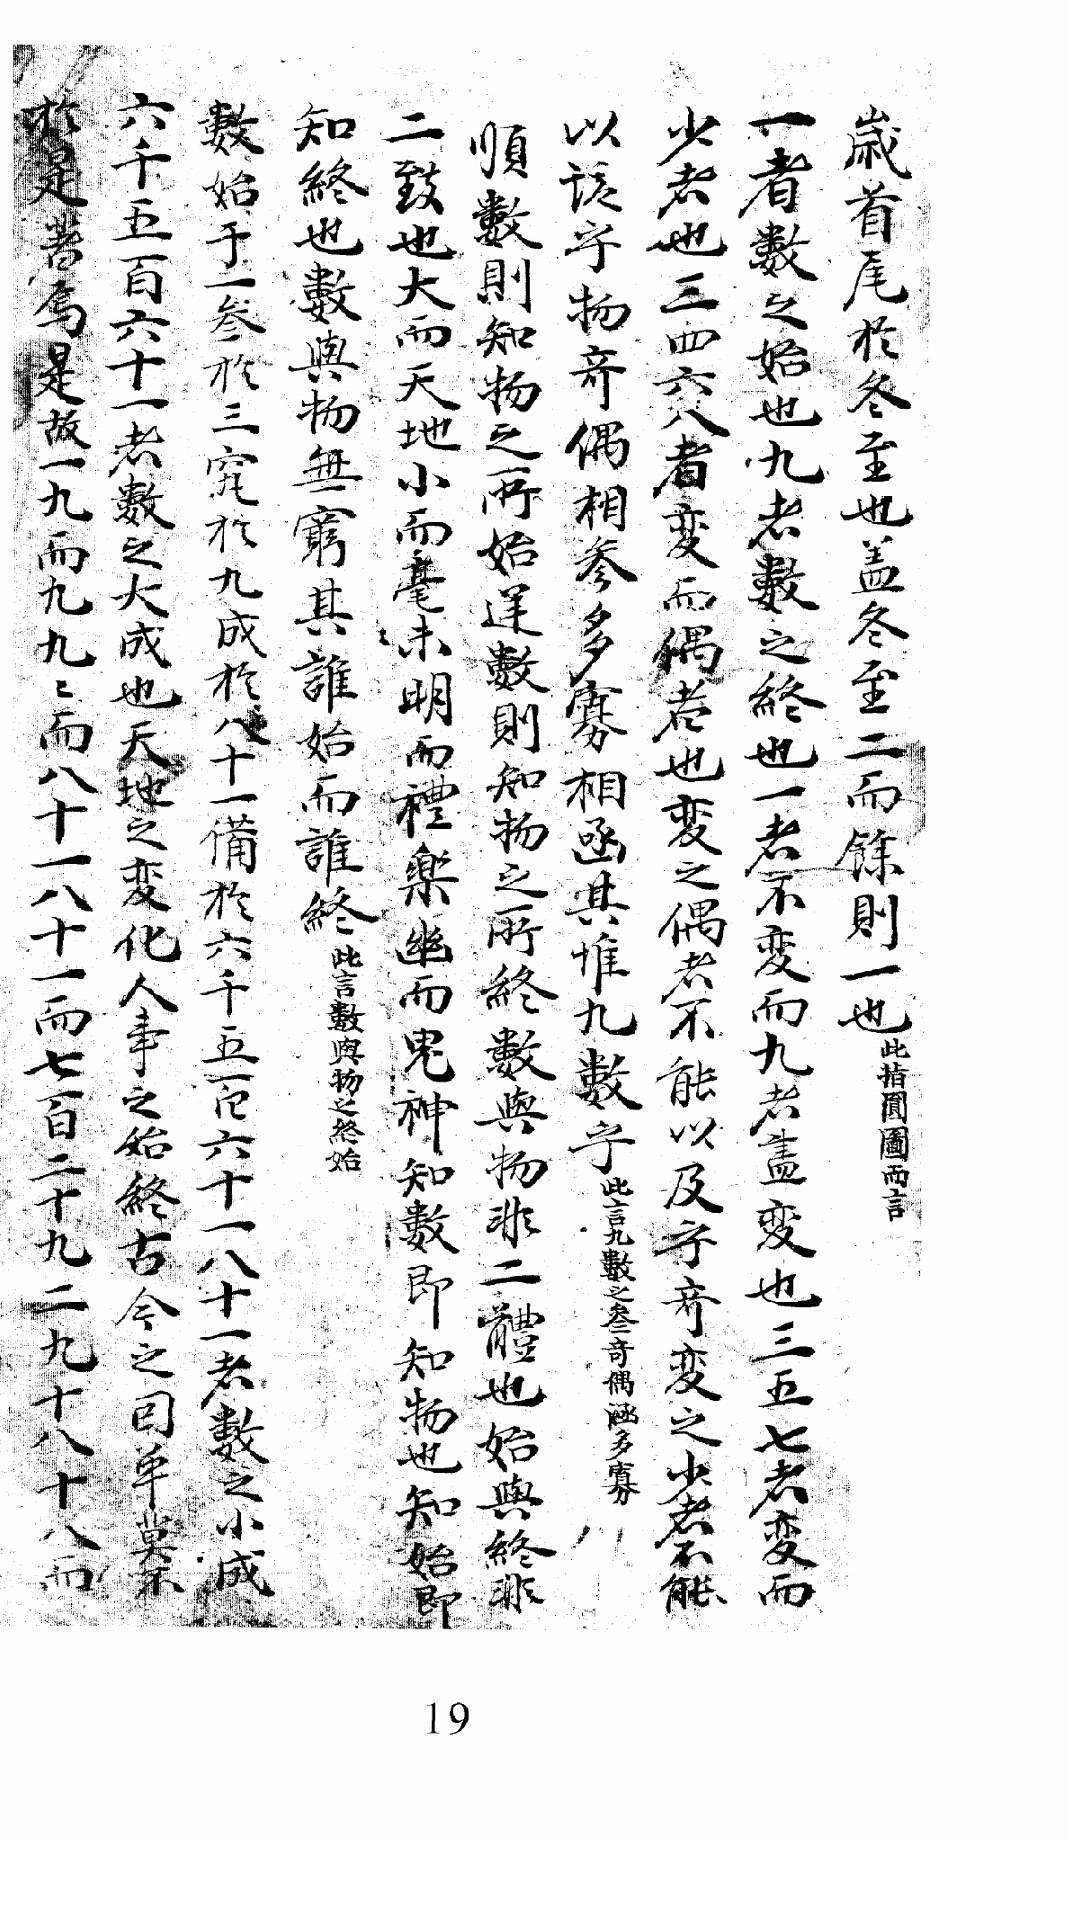 歲首尾於冬至也盖冬至二而餘則一也此指圎圖而言
一者數之始也九者數之終也一者不变而九者盡变也三五七者变而
少者也三四六八者变而偶者也变之偶者不能以及乎竒变之少者不能
以該乎物竒偶相参多寡相函其惟九數乎此言九數之叁奇偶涵多寡
順數則知物之所始逆數則知物之所終數與物非二體也始與終非
二致也大而天地小而毫末明而禮樂幽而鬼神知數即知物也知始即
知終也數與物無窮其誰始而誰終此言數與物之終始
數始于一叁於三究於九成於八十一備於六千五百六十一八十一者數之小成
六千五百六十一者數之大成也天地之变化人事之始終古今之因革莫不
於是著焉是故一九而九九〻而八十一八十一而七百二十九二九十八十八而